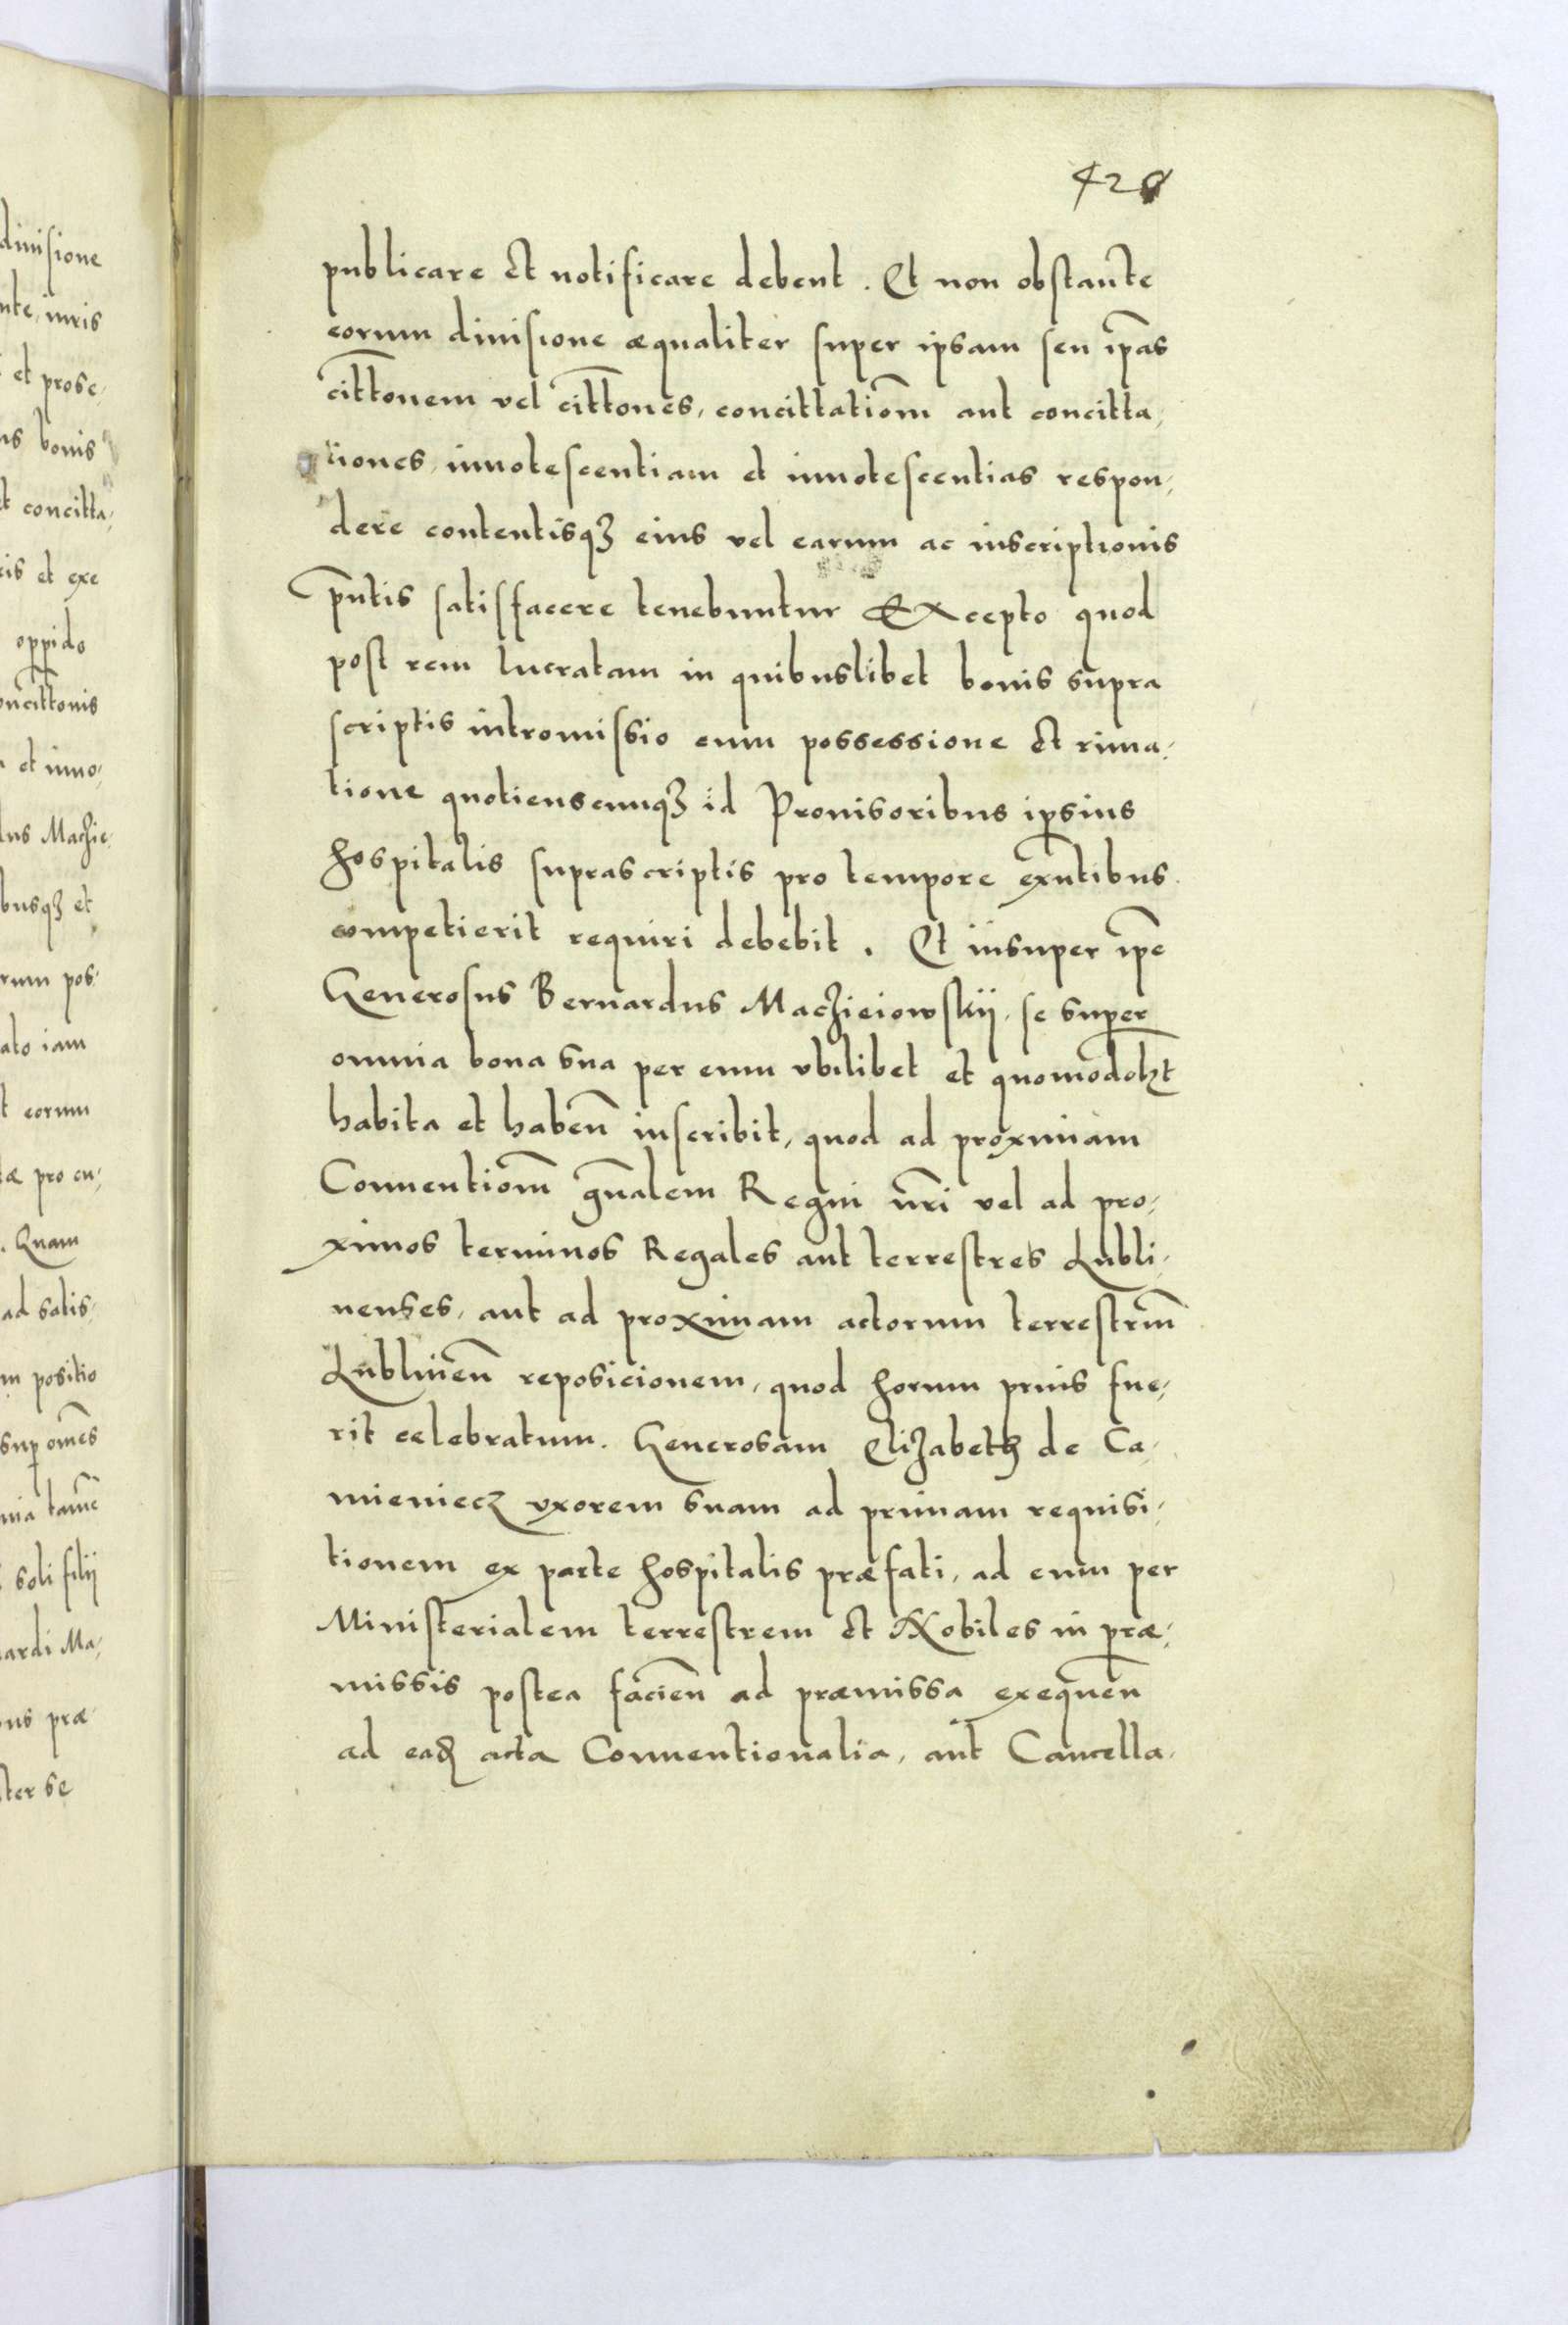 428
publicare et notificare debent. Et non obstante
eorum diuisione æqualiter super ipsam seu ip̄as
citt̄onem vel citt̄ones, concittatiōm aut concitta,
tiones, innotescentiam et innotescentias respon,
dere contentisqꝫ eius vel earum ac inscriptionis
p̄ntis satisfacere tenebuntur Excepto quod
post rem lucratam in quibuslibet bonis supra
scriptis intromissio cum possessione et rima,
tione quotienscunqꝫ id Prouisoribus ipsius
hospitalis suprascriptis pro tempore ex̄ntibus
competierit requiri debebit. Et insuper ip̄e
Generosus Bernardus Maczieiowskij, se super
omnia bona sua per eum vbilibet et quomōdolꝫt
habita et haben̄ inscribit, quod ad proximam
Conuentiōm gn̄alem Regni nr̄i vel ad pro,
ximos terminos Regales aut terrestres Lubli,
nenses, aut ad proximam actorum terrestriu̅
Lublinen̄ reposicionem, quod horum prius fue,
rit celebratum. Generosam Elizabeth de Ca,
mieniecz vxorem suam ad primam requisi,
tionem ex parte hospitalis præfati, ad eum per
Ministerialem terrestrem et Nobiles in præ,
missis postea facien̄ ad præmissa exequen̄
ad eadꝫ acta Conuentionalia, aut Cancella,
diuisione
nte, iuris
et prose,
ns bonis
et concitta,
ris et exe
oppido
oncitt̄onis
et inno,
dus Maczie,
busqꝫ et
rum pos,
ato iam
t eorum
tæ pro cu,
. Quam
ad satis,
m positio
sup om̄es
nia tam̄e
soli filij
ardi Ma,
ons præ
ter se